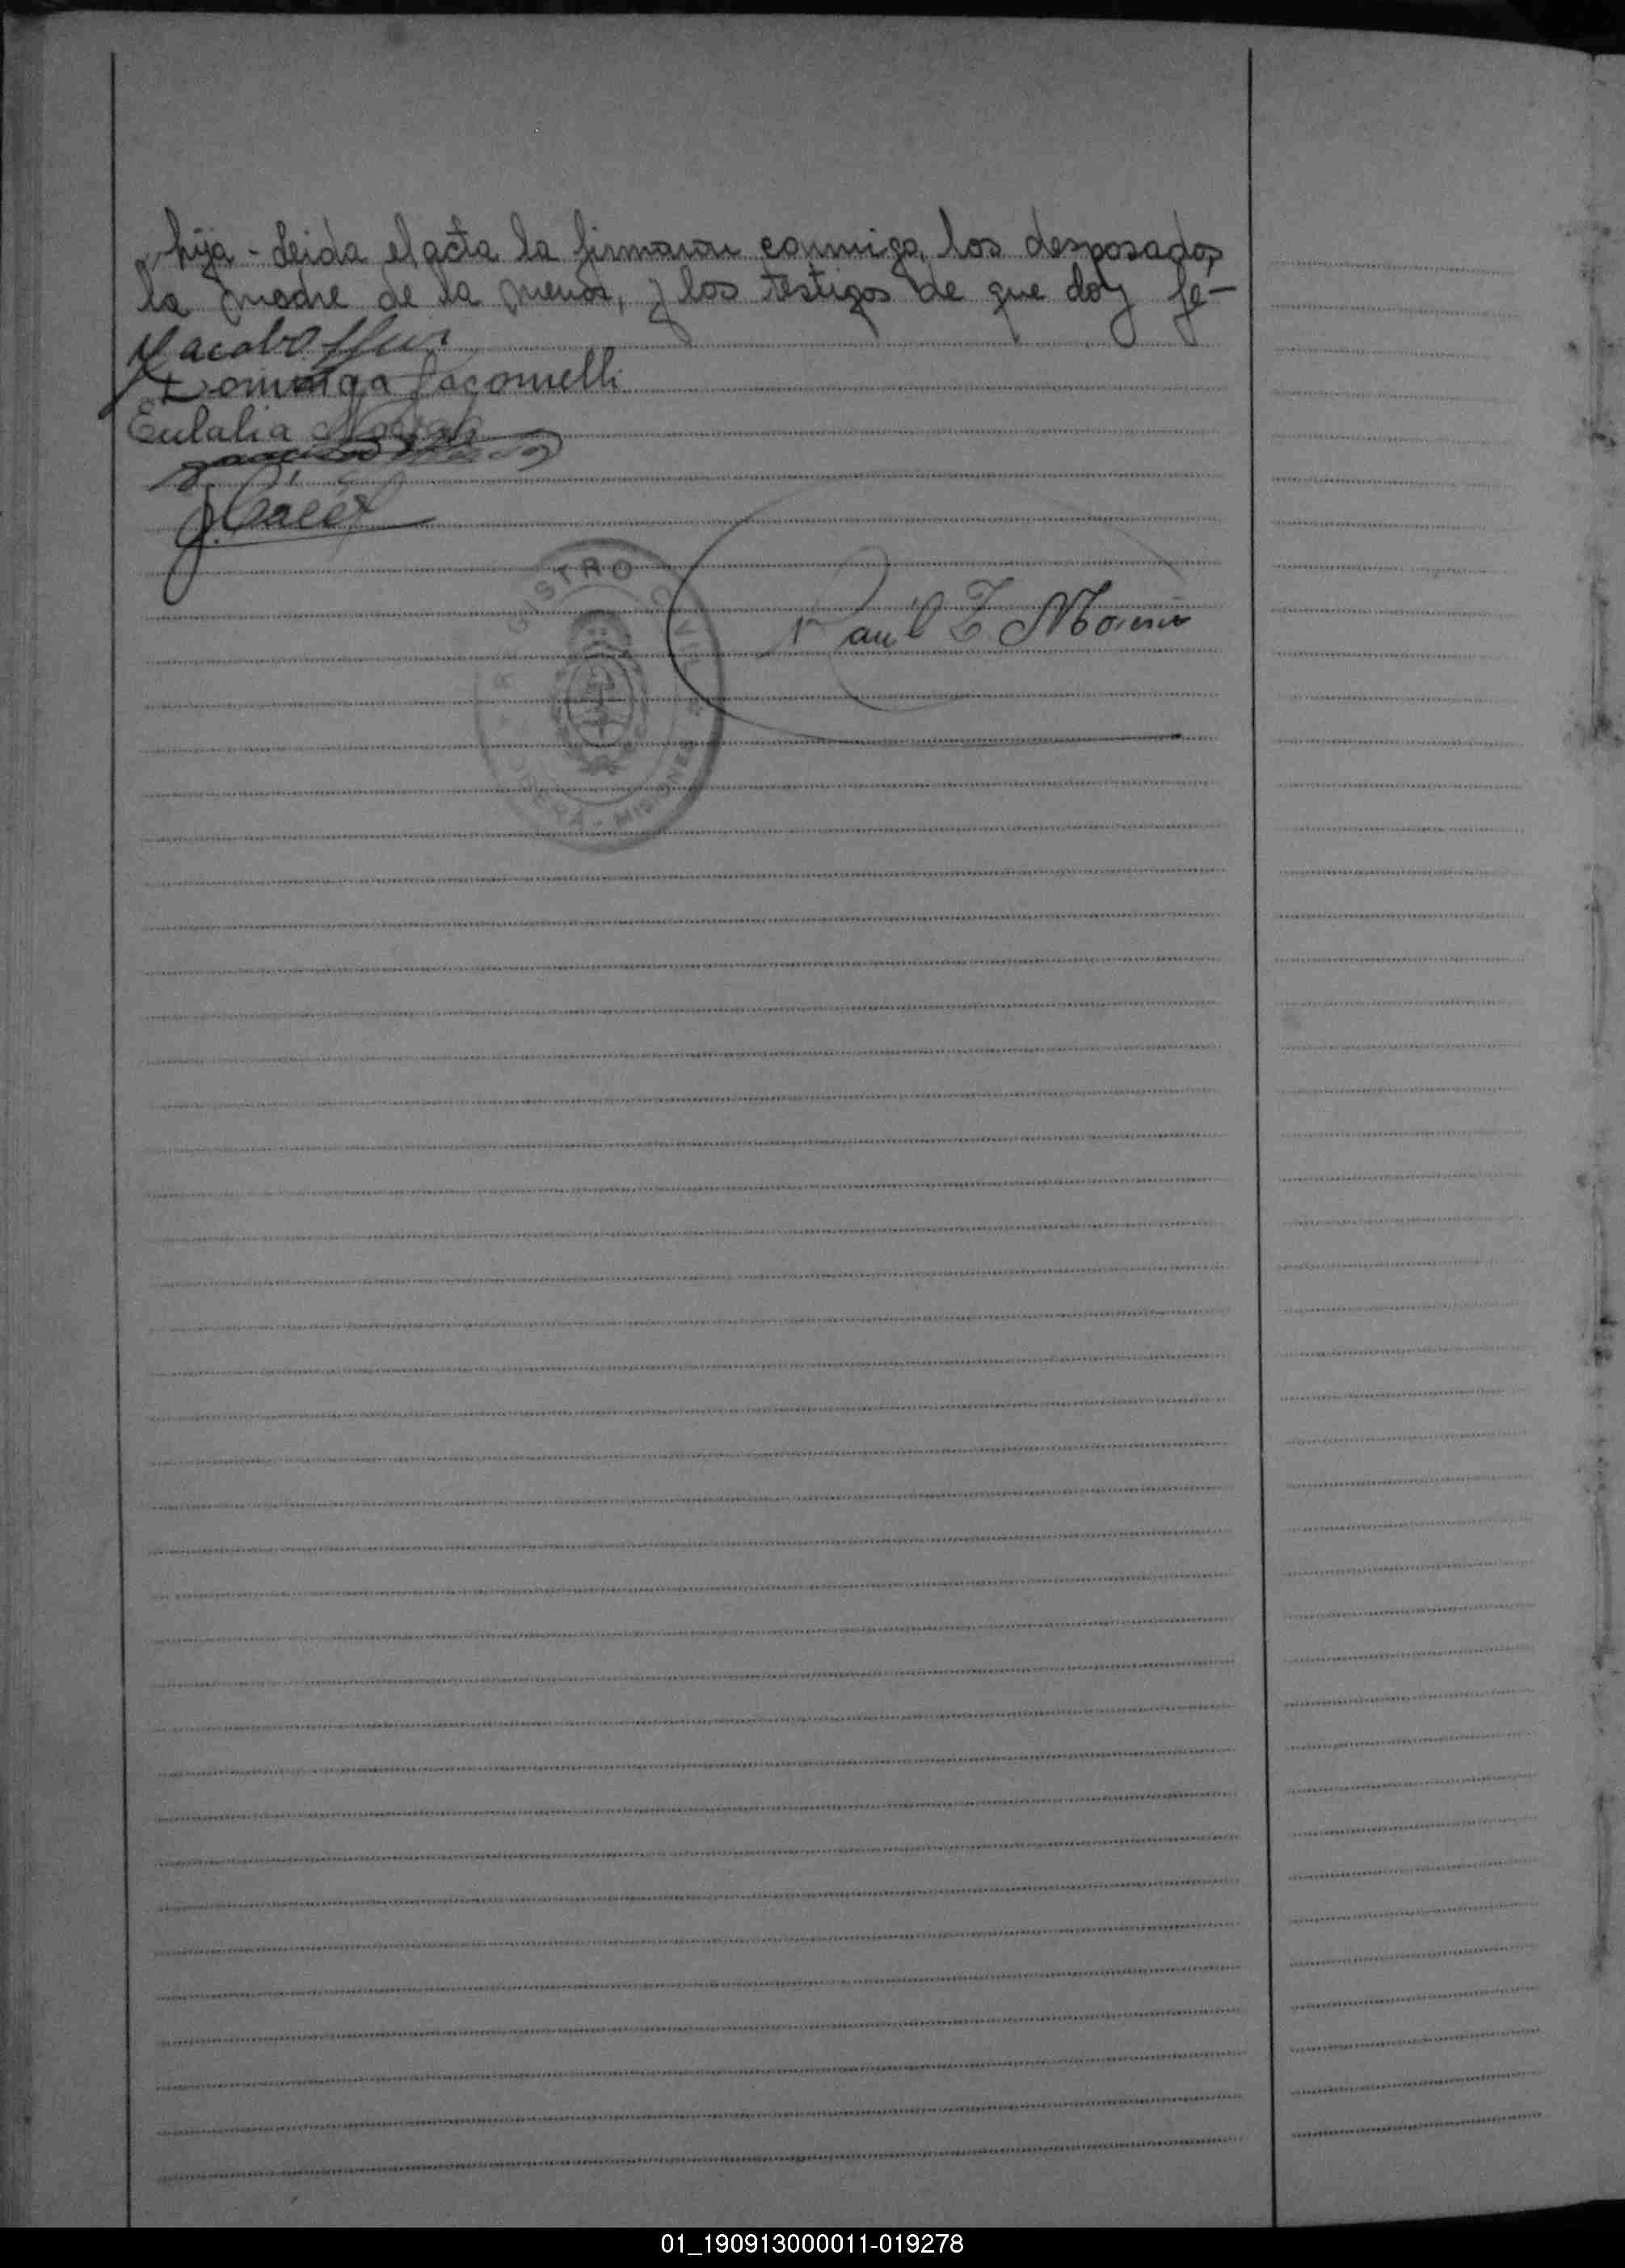 hija - Leida el acta la firmaron conmigo, los desposados,
la madre de la menor, y los testigos de que doy fe-
Jacobo
Dominga Jacomelli
Eulalia
REGISTRO CIVIL
OBERA - MISIONES
Raul Z Moreira
01_190913000011-019278